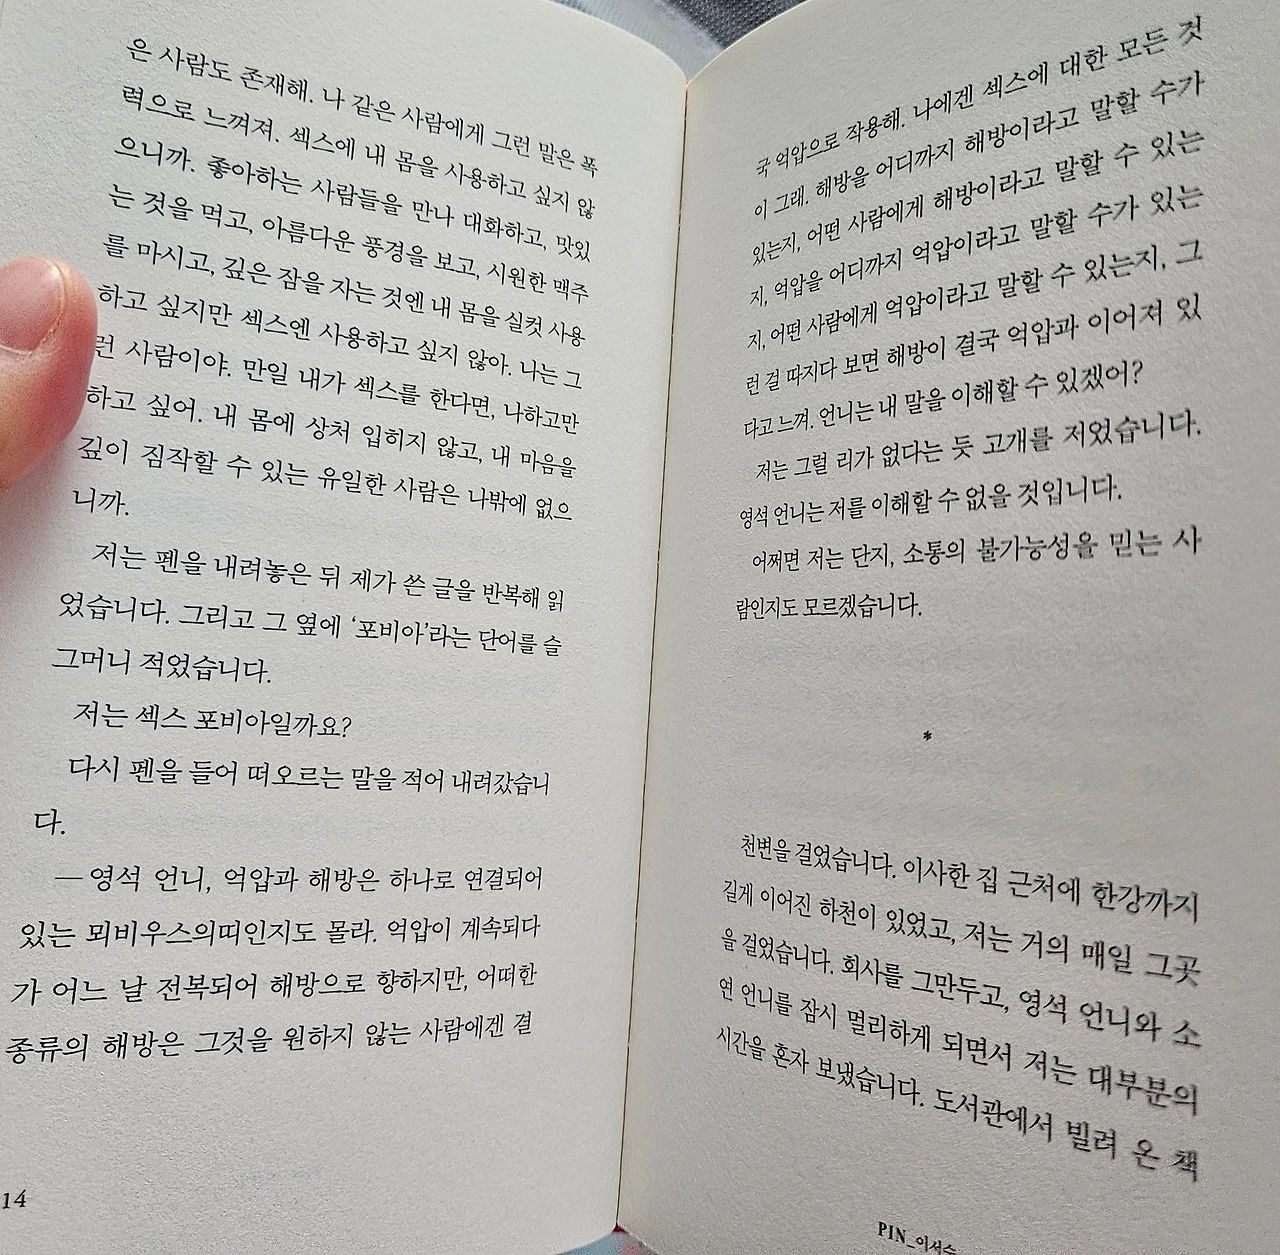 은 사람도 존재해. 나 같은 사람에게 그런 말은 폭
력으로 느껴져. 섹스에 내 몸을 사용하고 싶지 않
으니까. 좋아하는 사람들을 만나 대화하고, 맛있
는 것을 먹고, 아름다운 풍경을 보고, 시원한 맥주
를 마시고, 깊은 잠을 자는 것엔 내 몸을 실컷 사용
하고 싶지만 섹스엔 사용하고 싶지 않아. 나는 그
런 사람이야. 만일 내가 섹스를 한다면, 나하고만
하고 싶어. 내 몸에 상처 입히지 않고, 내 마음을
깊이 짐작할 수 있는 유일한 사람은 나밖에 없으
니까.
저는 펜을 내려놓은 뒤 제가 쓴 글을 반복해 읽
었습니다. 그리고 그 옆에 ‘포비아’라는 단어를 슬
그머니 적었습니다.
저는 섹스 포비아일까요?
다시 펜을 들어 떠오르는 말을 적어 내려갔습니
다.
— 영석 언니, 억압과 해방은 하나로 연결되어
있는 뫼비우스의띠인지도 몰라. 억압이 계속되다
가 어느 날 전복되어 해방으로 향하지만, 어떠한
종류의 해방은 그것을 원하지 않는 사람에겐 결
14
국 억압으로 작용해. 나에겐 섹스에 대한 모든 것
이 그래. 해방을 어디까지 해방이라고 말할 수가
있는지, 어떤 사람에게 해방이라고 말할 수 있는
지, 억압을 어디까지 억압이라고 말할 수가 있는
지, 어떤 사람에게 억압이라고 말할 수 있는지, 그
런 걸 따지다 보면 해방이 결국 억압과 이어져 있
다고 느껴. 언니는 내 말을 이해할 수 있겠어?
저는 그럴 리가 없다는 듯 고개를 저었습니다.
영석 언니는 저를 이해할 수 없을 것입니다.
어쩌면 저는 단지, 소통의 불가능성을 믿는 사
람인지도 모르겠습니다.
*
천변을 걸었습니다. 이사한 집 근처에 한강까지
길게 이어진 하천이 있었고, 저는 거의 매일 그곳
을 걸었습니다. 회사를 그만두고, 영석 언니와 소
연 언니를 잠시 멀리하게 되면서 저는 대부분의
시간을 혼자 보냈습니다. 도서관에서 빌려 온 책
PIN_이서수